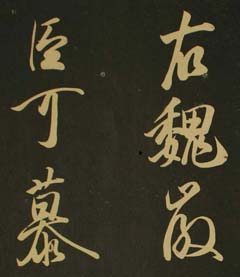 右魏
臣可慕